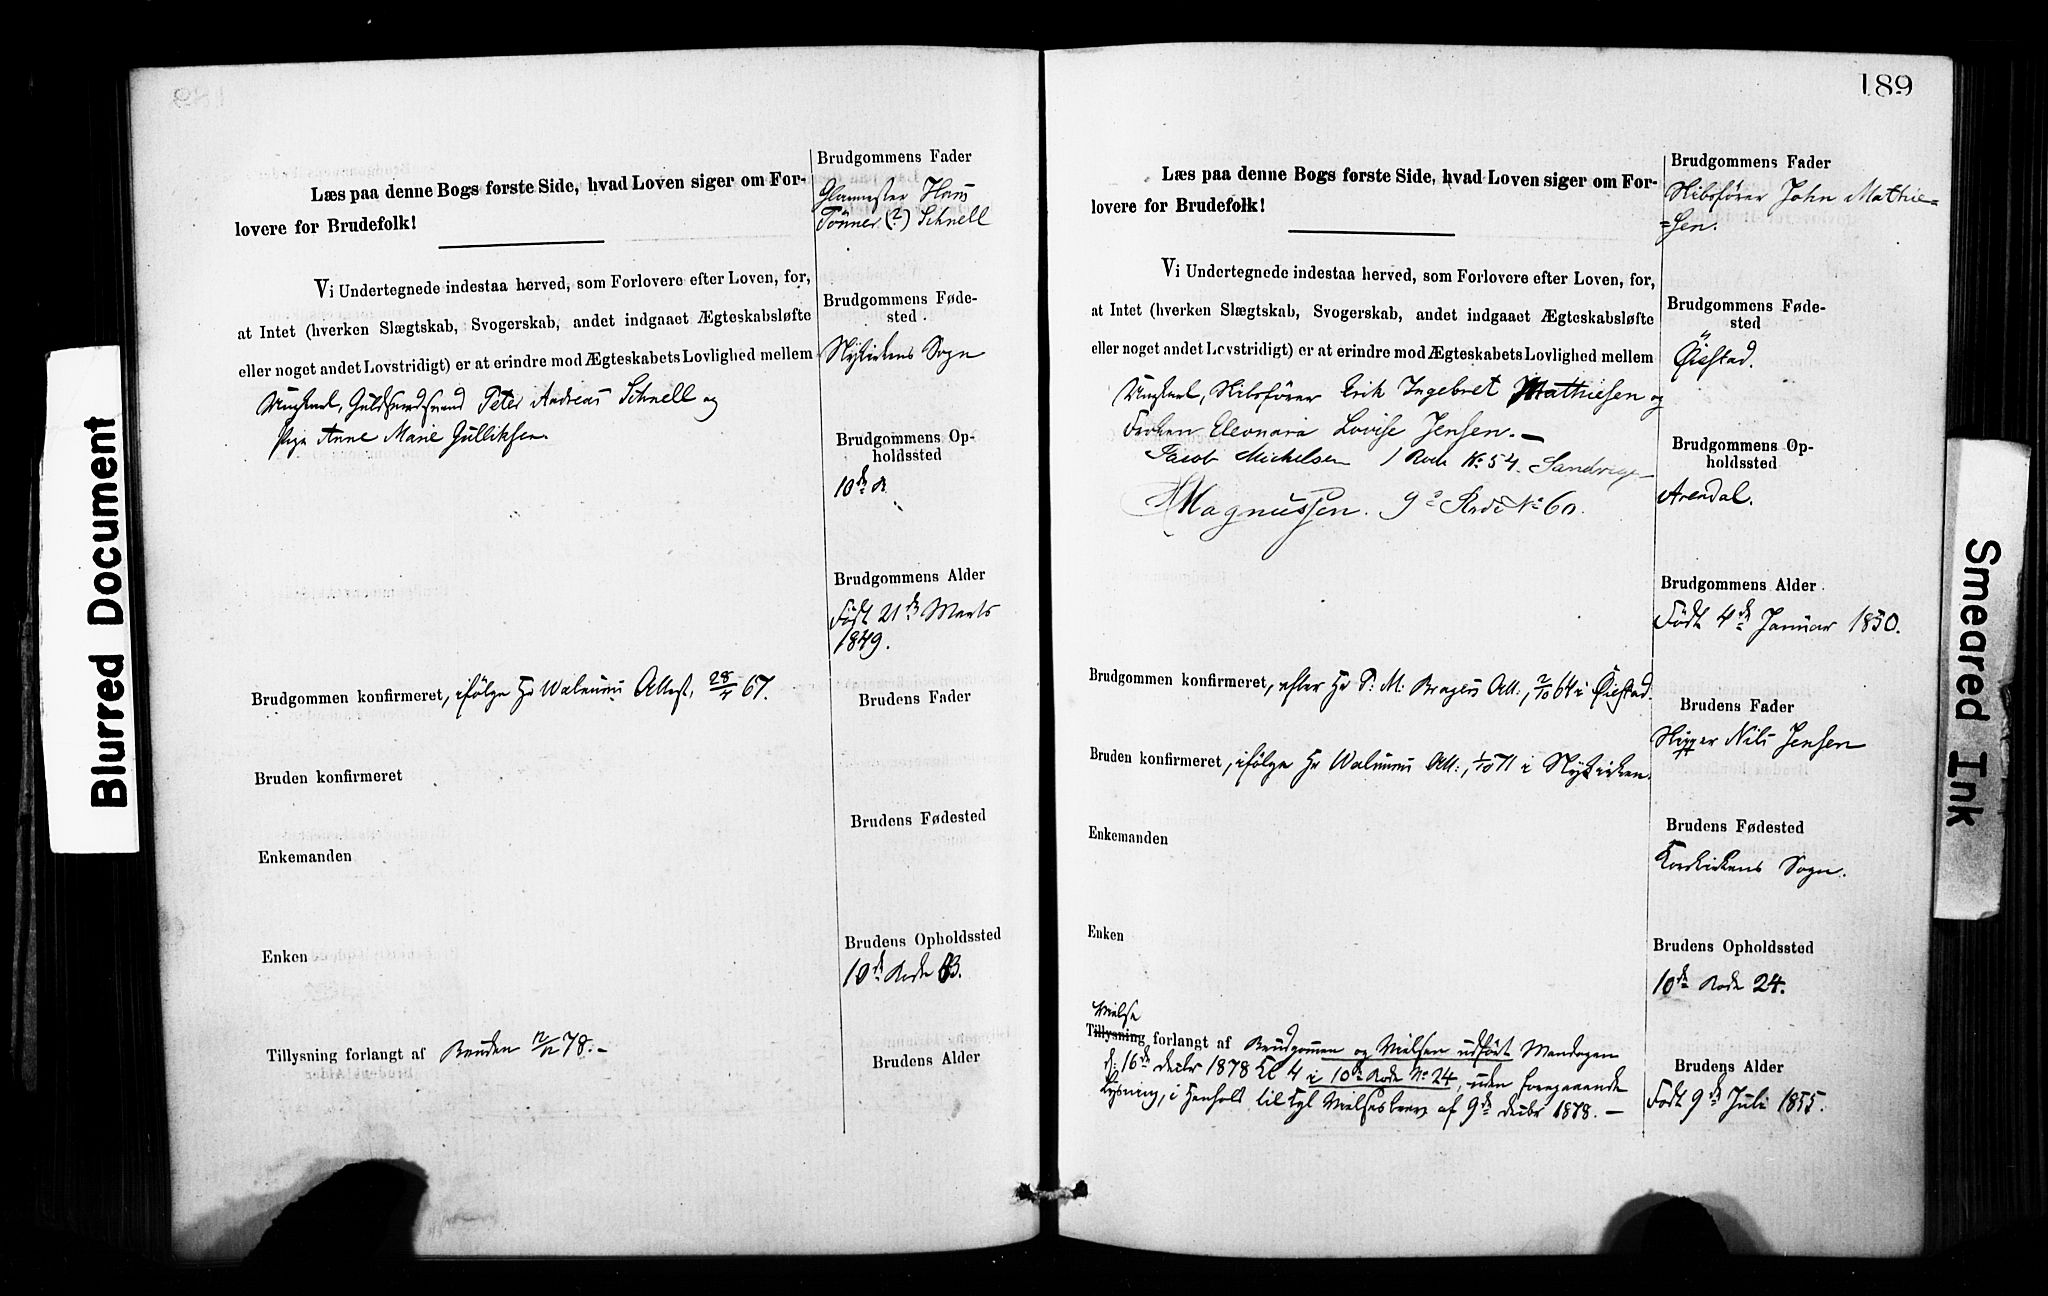 Blurred Document
Læs paa denne Bogs første Side, hvad Loven siger om For-
lovere for Brudefolk!
Vi Undertegnede indestaa herved, som Forlovere efter Loven, for,
at Intet (hverken Slægtskab, Svogerskab, andet indgaaet Ægteskabsløfte
eller noget andet Lovstridigt) er at erindre mod Ægteskabets Lovlighed mellem
Ungkarl, Guldsmedsvend Peter Andreas Schnell og
Pige Anne Marie Gulliksen.
Brudgommen konfirmeret, ifölge Hr Walnums Attest, 28/4 67.
Bruden konfirmeret
Enkemanden
Enken
Tillysning forlangt af Bruden 12/12 78. –
Brudgommens Fader
Glarmester Hans
Tönner (?) Schnell
Brudgommens Føde-
sted
Nykirkens Sogn
Brudgommens Op-
holdssted
10de R
Brudgommens Alder
Födt 21de Marts
1849.
Brudens Fader
Brudens Fødested
Brudens Opholdssted
10de Rode
Brudens Alder
189
Læs paa denne Bogs første Side, hvad Loven siger om For-
lovere for Brudefolk!
Vi Undertegnede indestaa herved, som Forlovere efter Loven, for,
at Intet (hverken Slægtskab, Svogerskab, andet indgaaet Ægteskabsløfte
eller noget andet Lovstridigt) er at erindre mod Ægteskabets Lovlighed mellem
Ungkarl, Skibsförer Erik Ingebret Mathiesen og
Fröken Eleonora Lovise Jensen. –
Jacob Michelsen 1 Rode No 54. Sandvigen
Magnussen. 9de Rode No 60.
Brudgommen konfirmeret, efter Hr P: M: Brages Att:, 2/10 64 i Öiestad.
Bruden konfirmeret, ifölge Hr Walnums Att:, 1/10 71 i Nykirken.
Enkemanden
Enken
Vielse
Tillysning forlangt af Brudgommen og Vielsen udfört Mandagen
d: 16de Decbr 1878 Kl 4 i 10de Rode No 24, uden foregaaende
Lysning, i Henhold til Kgl Vielsesbrev af 9de Decbr 1878. –
Brudgommens Fader
Skibsförer John Mathie=
=sen.
Brudgommens Føde-
sted
Öiestad.
Brudgommens Op-
holdssted
Arendal.
Brudgommens Alder
Födt 4de Januar 1850.
Brudens Fader
Skipper Nils Jensen
Brudens Fødested
Korskirkens Sogn.
Brudens Opholdssted
10de Rode 24.
Brudens Alder
Födt 9de Juli 1855.
Smeared Ink